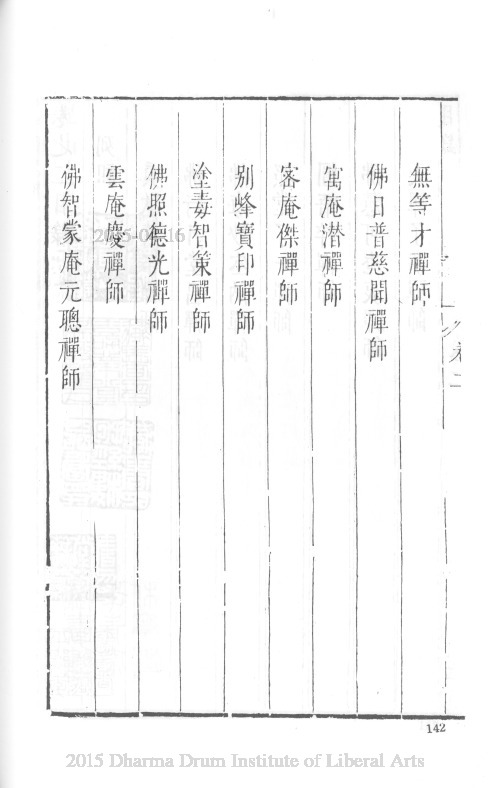 無等才禪師
佛日普慈聞禪師
寓庵潜禪師
密庵傑禪師
别峰寶印禪師
塗毒智策禪師
佛照德光禪師
雲庵慶禪師
佛智蒙庵元聰禪師
142
2015 Dharma Drum Institute of Liberal Arts